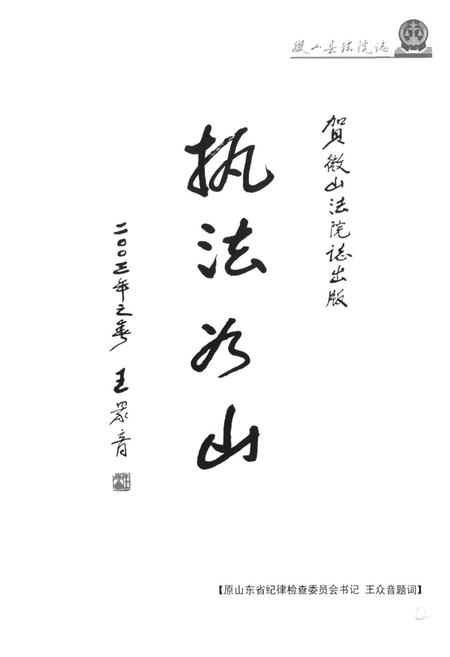 微山县法院誌
賀微山法院誌出版
执法如山
二〇〇三年之春 王眾音
【原山东省纪律检查委员会书记 王众音题词】